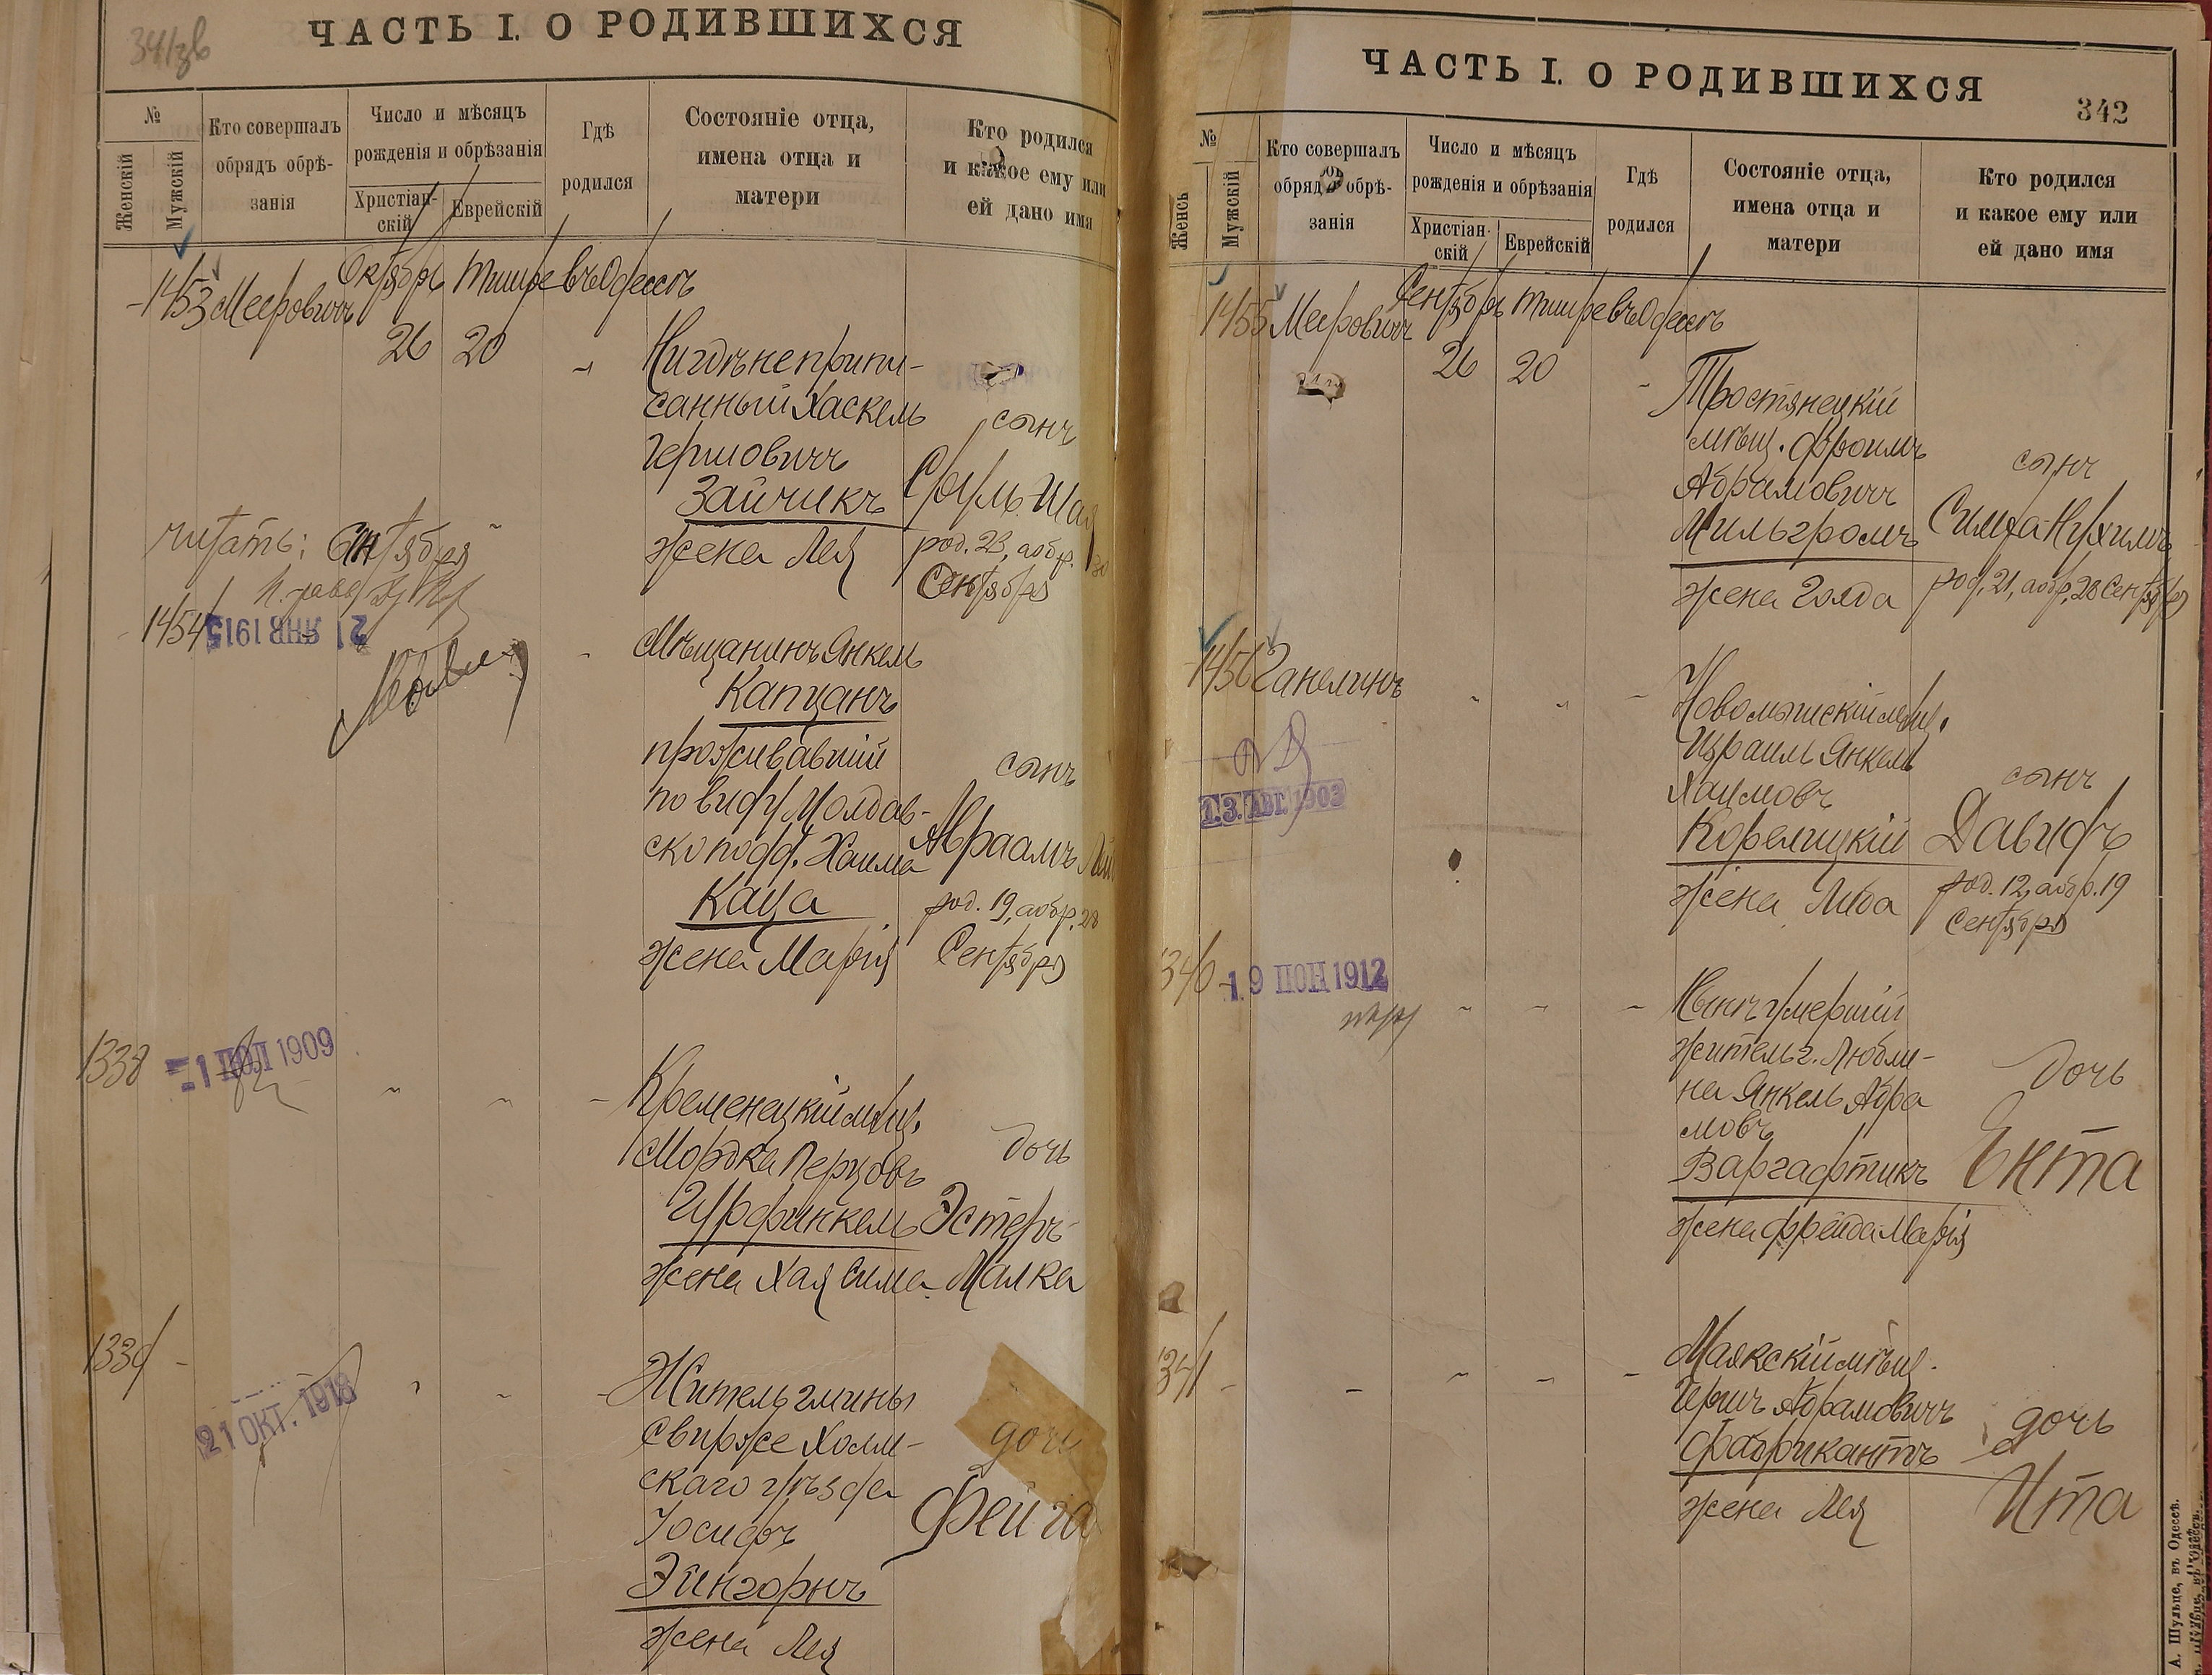 ЧАСТЬ I. О РОДИВШИХСЯ
№
Женскій
Мужскій
Кто совершалъ
обрядъ обрѣ-
занія
Число и мѣсяцъ
рожденія и обрѣзанія
Христіан-
скій
Еврейскій
Гдѣ
родился
Состояніе отца,
имена отца и
матери
Кто родился
и какое ему или
ей дано имя
1453 Мееровичъ
Октября Тишре въ Одессѣ
26 20
Нигдѣ не припи-
санный Хаскель
Гершовичъ
Зайчикъ
жена Лея
сынъ
Сруль-Шая
род. 23, а обр. 30
Сентября
читать: Сентября
1454
21 ЯНВ 1915
Мѣщанинъ Янкель
Капцанъ
проживавшій
по виду Молдав-
ско подд. Хаима
Каца
жена Марія
сынъ
Авраамъ
род. 19, а обр. 28
Сентября
1338
-1 ІЮЛ 1909
Кременецкій мѣщ.
Мордка Перцовъ
Гурфинкель
жена Хая Сима
дочь
Эстеръ-
Малка
1339
21 ОКТ. 1918
Житель гмины
Свирже Холм-
скаго уѣзда
Іосифъ
Эйнгорнъ
жена Лея
дочь
Фейга
ЧАСТЬ I. О РОДИВШИХСЯ
342
№
Женсь
Мужскій
Кто совершалъ
обрядъ обрѣ-
занія
Число и мѣсяцъ
рожденія и обрѣзанія
Христіан-
скій
Еврейскій
Гдѣ
родился
Состояніе отца,
имена отца и
матери
Кто родился
и какое ему или
ей дано имя
1455 Мееровичъ
Сентябрь Тишре въ Одессѣ
26 20
Тростянецкій
мѣщ. Фроимъ
Абрамовичъ
Мильгромъ
жена Голда
сынъ
Симха-Нухимъ
род. 21, а обр. 28 Сентября
1456 Ганелинъ
13. АВГ. 1903
Новомыскій мѣщ.
Израиль Янкель
Хаимовъ
Корелицкій
жена Либа
сынъ
Давидъ
род. 12, а обр. 19
Сентября
1340
19 ІЮН 1912
Нынѣ умершій
житель г. Любли-
на Янкель Абра
мовъ
Варгафтикъ
жена Фрейда Марія
дочь
Ента
1341
Маякскій мѣщ.
Гершъ Абрамовичъ
Фабрикантъ
жена Лея
дочь
Ита
А. Шульце, въ Одессѣ.